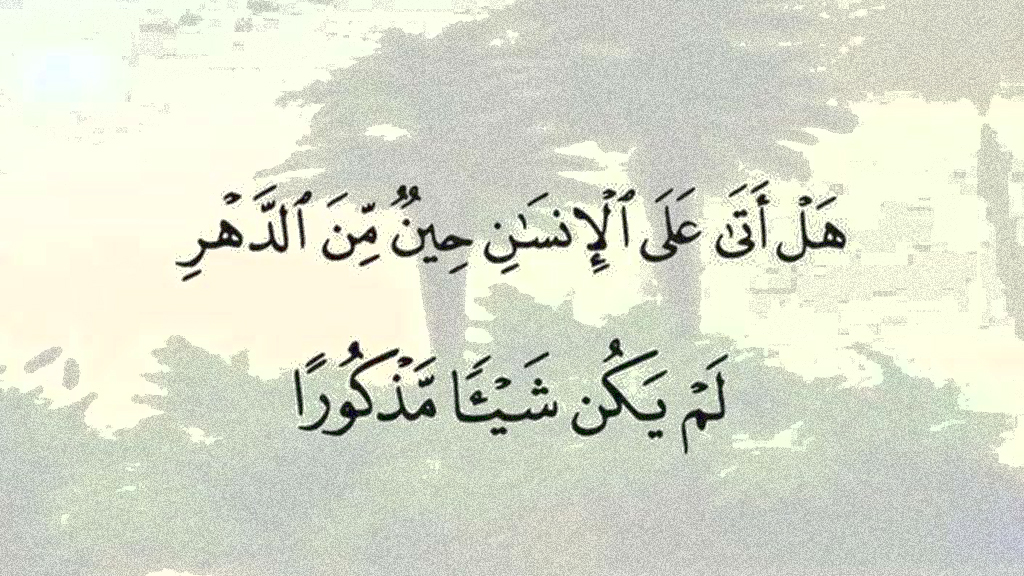 هَلْ أَتَىٰ عَلَى ٱلْإِنسَـٰنِ حِينٌ مِّنَ ٱلدَّهْرِ
لَمْ يَكُن شَيْـًٔا مَّذْكُورًا